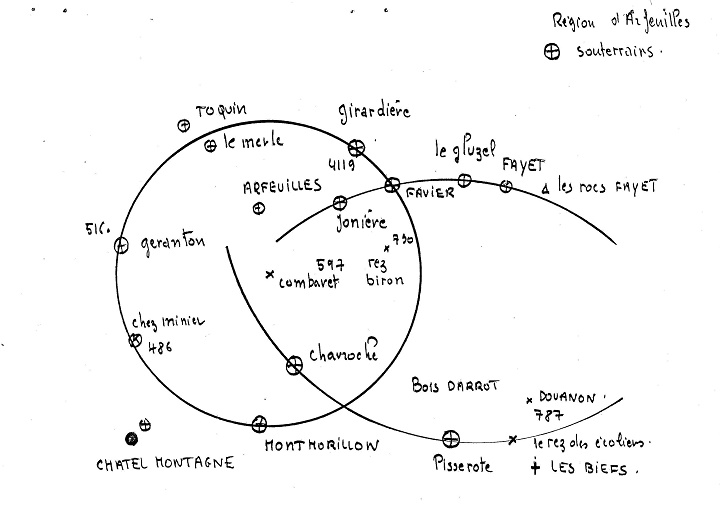 Région d'Arfeuilles
souterrains.
TOQUIN
girardière
le merle
4119
le gluzel
FAYET
ARFEUILLES
FAVIER
les rocs FAYET
Jonière
516.
geranton
790
597
rez
combaret
biron
chez minier
486
chavroche
BOIS DARROT
DOUANON.
787
MONTMORILLON
le rez des écoliers.
CHATEL MONTAGNE
Pisserote
LES BIEFS.